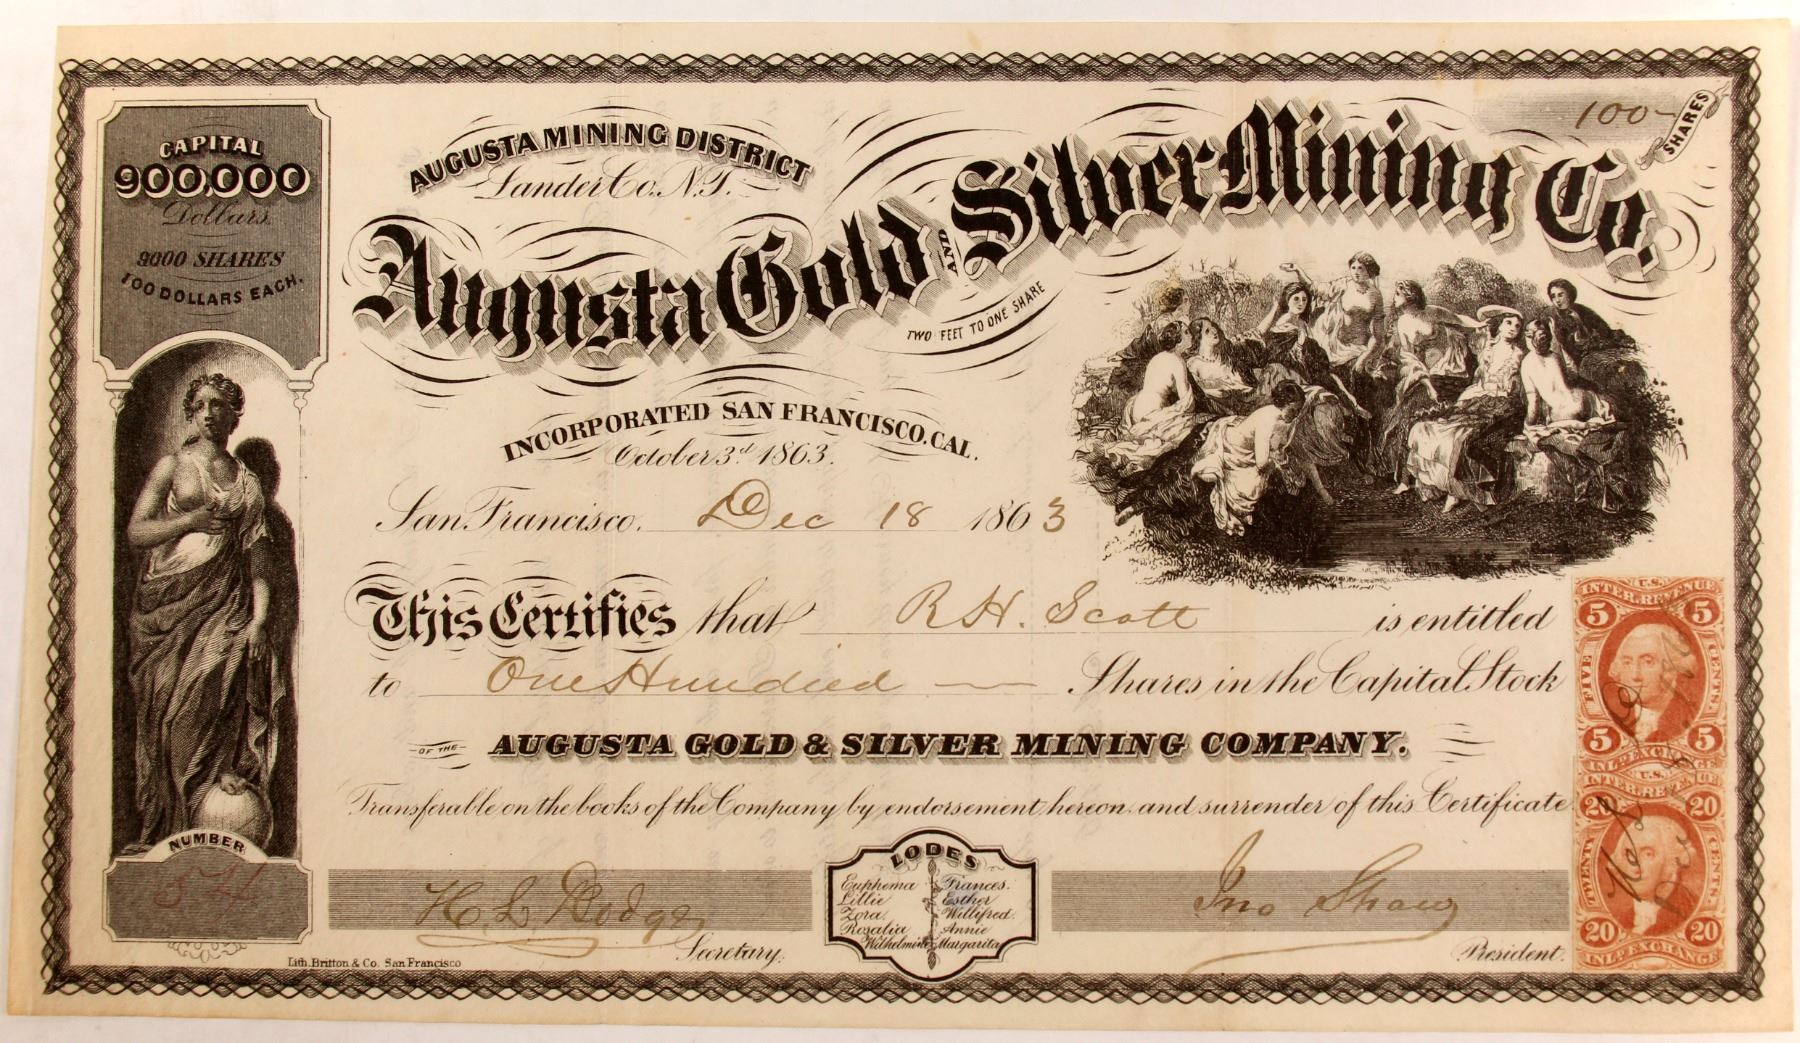 CAPITAL
900,000
Dollars.
9000 SHARES
100 DOLLARS EACH.
AUGUSTA MINING DISTRICT
Lander Co. N.T.
100
SHARES
Augusta Gold AND Silver Mining Co.
TWO FEET TO ONE SHARE
INCORPORATED SAN FRANCISCO, CAL.
October 3d 1863.
San Francisco, Dec 18 1863
This Certifies that R H. Scott is entitled
to One Hundred Shares in the Capital Stock
OF THE AUGUSTA GOLD & SILVER MINING COMPANY.
Transferable on the books of the Company by endorsement hereon and surrender of this Certificate
NUMBER
54
LODES
Euphema Frances.
Lillie Esther
Zora. Willifred.
Rosalia Annie
Wilhelmine Margarita
H. L. Dodge
Secretary.
Jno Shaw
President.
Lith. Britton & Co. San Francisco
U.S.
INTER. REVENUE
5 5
FIVE CENTS.
5 5
INL. EXCHANGE
U.S.
INTER. REVENUE
20 20
TWENTY CENTS.
20 20
INL. EXCHANGE